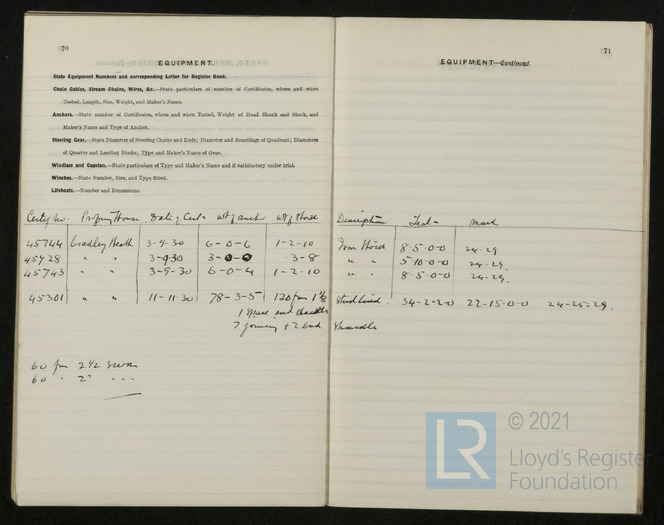 70
EQUIPMENT.
State Equipment Numbers and corresponding Letter for Register Book.
Chain Cables, Stream Chains, Wires, &c.—State particulars of number of Certificates, where and when
Tested, Length, Size, Weight, and Maker's Name.
Anchors.—State number of Certificates, where and when Tested, Weight of Head Shank and Stock, and
Maker's Name and Type of Anchor.
Steering Gear.—State Diameter of Steering Chains and Rods; Diameter and Scantlings of Quadrant; Diameters
of Quarter and Leading Blocks; Type and Maker's Name of Gear.
Windlass and Capstan.—State particulars of Type and Maker's Name and if satisfactory under trial.
Winches.—State Number, Size, and Type fitted.
Lifeboats.—Number and Dimensions.
Certif No. Proving House Date of Cert wt of anch wt of stock
45744 Cradley Heath 3-9-30 6-0-6 1-2-10
45728 " " 3-9-30 3-0-0 3-8
45743 " " 3-9-30 6-0-4 1-2-10
45301 " " 11-11-30 78-3-5 120 fm 1 1/8
1 end shackle
7 joining + 2 end
60 fm 2 1/2
60 " 2" " "
71
EQUIPMENT—Continued.
Description Test
Iron Stock 8-5-0-0 24-29
" " 5-10-0-0 24-29.
" " 8-5-0-0 24-29.
Stud Link 34-2-2-0 22-15-0-0 24-25-29.
Shackle
© 2021
LR
Lloyd's Register
Foundation